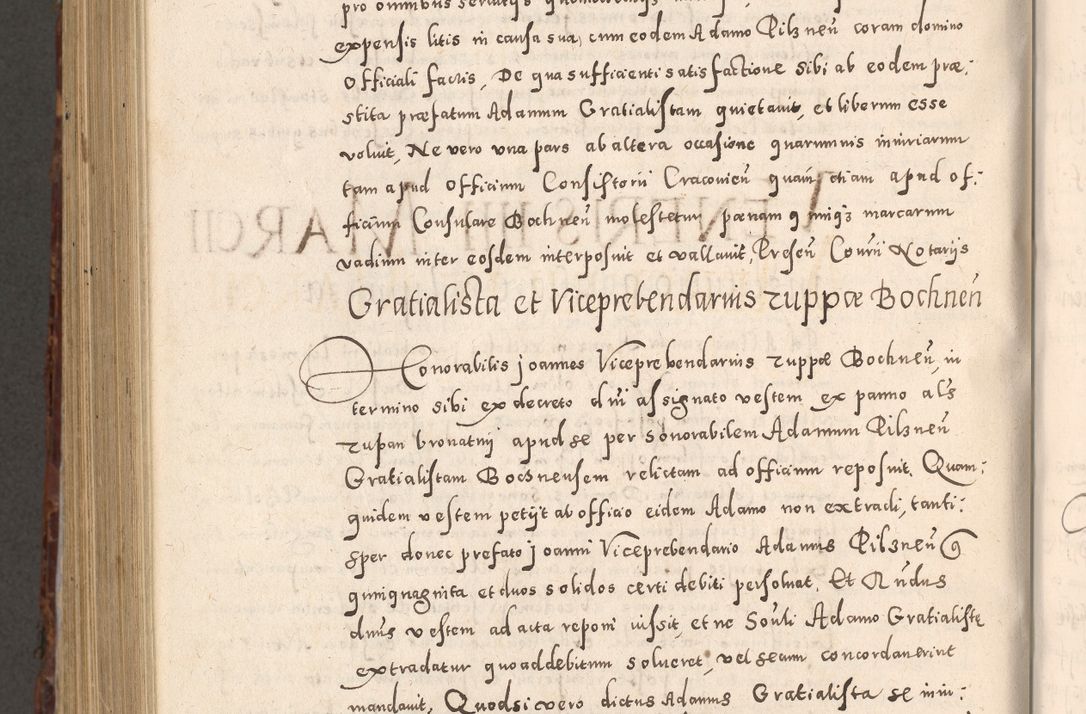 pro omnibus servitijs
expensis litis in causa sua, cum eodem Adamo Pilsneñ coram domino
Officiali factis, De qua sufficienti satisfactione sibi ab eodem præ:
stita præfatum Adamum Gratialistam quietavit, et liberum esse
voluit, Ne vero una pars ab altera occasione quarumvis iniuriarum
tam apud Officium Consistorii Cracovieñ quam etiam apud of:
ficium Consulare Bochneñ molestetur pænam marcarum
vadium inter eosdem interposuit et vallavit, Preseñ Notarijs
Gratialista et Viceprebendarius zuppæ Bochneñ
Honorabilis Joannes Viceprebendarius zuppæ Bochneñ, in
termino sibi ex decreto dñi assignato vestem ex panno als
zupan bronatni apud se per honorabilem Adamum Pilsneñ
Gratialistam Bochnensem relictam ad officium reposuit. Quam:
quidem vestem petijt ab officio eidem Adamo non extradi, tanti:
sper donec prefato Joanni Viceprebendario Adamus Pilsneñ
quinquaginta et duos solidos certi debiti persolvat. Et Rñdus
dnus vestem ad acta reponi iussit, et ne Adamo Gratialistæ
extradatur quoad debitum solveret, vel secum concordaverint
mandavit, Quodsi vero dictus Adamus Gratialista se